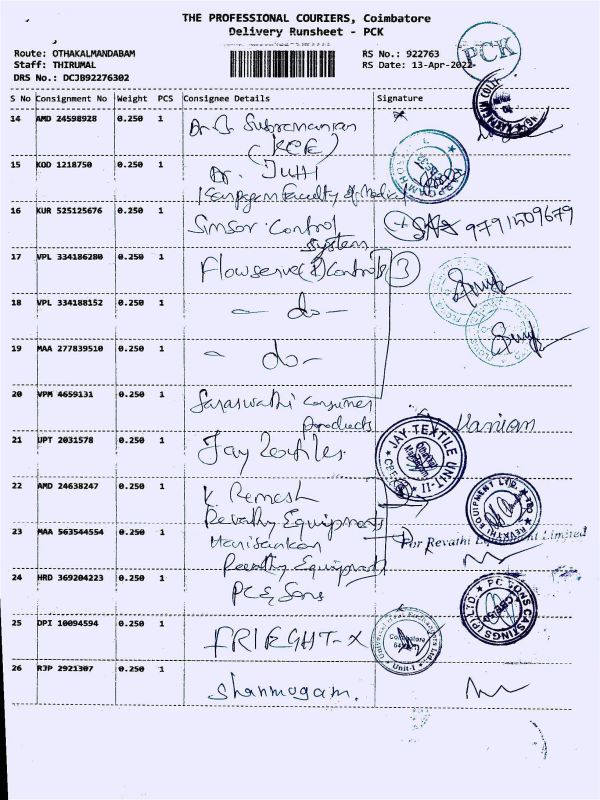 THE PROFESSIONAL COURIERS, Coimbatore
Delivery Runsheet - PCK
Route: OTHAKALMANDABAM
Staff: THIRUMAL
DRS No.: DCJB92276302
RS No.: 922763
RS Date: 13-Apr-2022
PCK
S No Consignment No Weight PCS Consignee Details Signature
14 AMD 24598928 0.250 1 Dr. G. Subramanian
(KCE)
15 KOD 1218750 0.250 1 Dr.
Karpagam Faculty of Medical
16 KUR 525125676 0.250 1 Sinsor Control
System
9791509679
17 VPL 334186280 0.250 1 Flowserve (I) Controls 3
18 VPL 334188152 0.250 1 - do -
19 MAA 277839510 0.250 1 - do -
20 VPM 4659131 0.250 1 Saraswathi Consumer
products
21 UPT 2031578 0.250 1 Jay Textiles
JAY TEXTILE UNIT-II
22 AMD 24638247 0.250 1 K Remesh
Revathy Equipments
REVATHI EQUIPMENT LTD
23 MAA 563544554 0.250 1 Harisankar
Revathy Equipments
For Revathi Equipment Limited
24 HRD 369204223 0.250 1 PC & Sons
PC SONS CASTINGS (P) LTD
25 DPI 10094594 0.250 1 FRIEGHT-X
Coimbatore
Unit-I
26 RJP 2921307 0.250 1 Shanmugam.